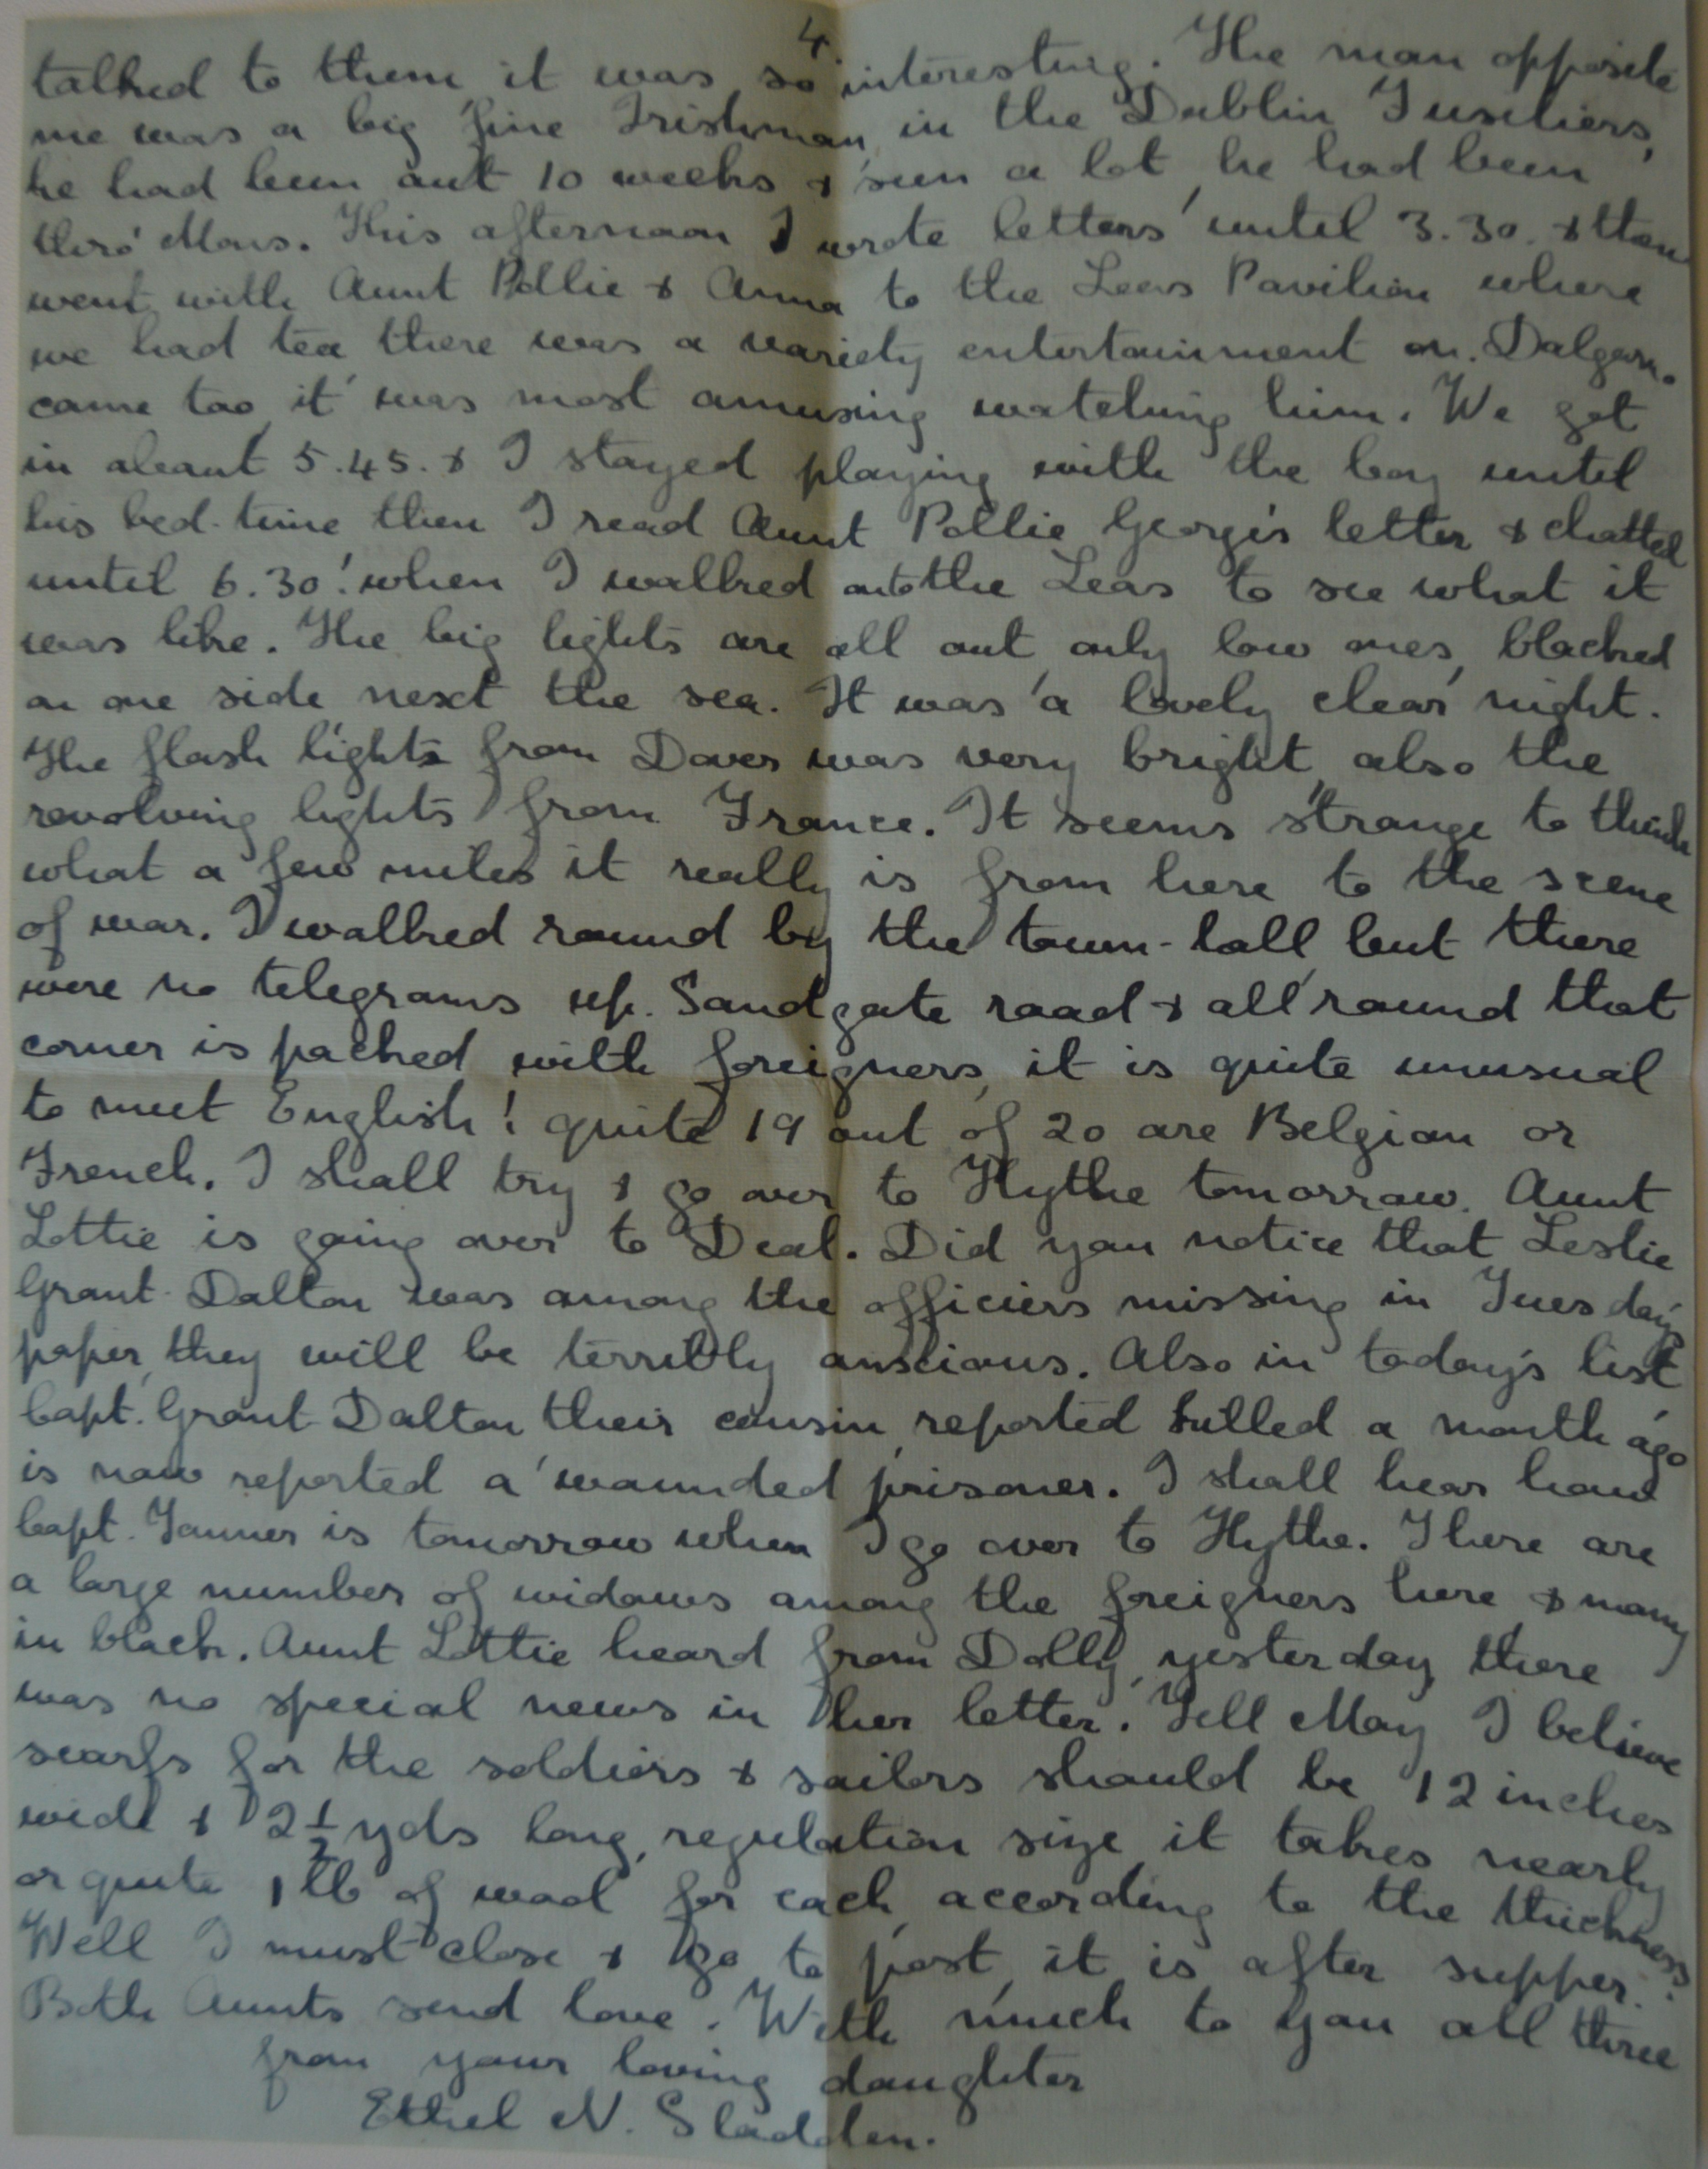 4.
talked to them it was so interesting. The man opposite
me was a big fine Irishman, in the Dublin Fusiliers,
he had been out 10 weeks & seen a lot, he had been
thro' Mons. This afternoon I wrote letters until 3.30. & then
went with Aunt Pollie & Anna to the Leas Pavilion where
we had tea, there was a variety entertainment on. Dalgarno.
came too, it was most amusing watching him. We got
in about 5.45. & I stayed playing with the boy until
his bed-time then I read Aunt Pollie George's letter & chatted
until 6.30! when I walked onto the Leas to see what it
was like. The big lights are all out, only low ones, blacked
on one side next the sea. It was a lovely clear night.
The flash lights from Dover was very bright, also the
revolving lights from France. It seems strange to think
what a few miles it really is from here to the scene
of war. I walked round by the town-hall but there
were no telegrams up. Sandgate road & all round that
corner is packed with foreigners, it is quite unusual
to meet English! quite 19 out of 20 are Belgian or
French. I shall try & go over to Hythe tomorrow. Aunt
Lottie is going over to Deal. Did you notice that Leslie
Grant-Dalton was among the officiers missing in Tuesday's
paper, they will be terribly anxious. Also in today's list
Capt. Grant-Dalton their cousin, reported killed a month ago
is now reported a wounded prisoner. I shall hear how
Capt. Tanner is tomorrow when I go over to Hythe. There are
a large number of widows among the foreigners here & many
in black. Aunt Lottie heard from Dolly, yesterday, there
was no special news in her letter. Tell May I believe
scarfs for the soldiers & sailors should be 12 inches
wide & 2½ yds long, regulation size it takes nearly
or quite 1 lb of wool for each, according to the thickness.
Well I must close & go to post, it is after supper.
Both Aunts send love. With much to you all three
from your loving daughter
Ethel N. Sladden.